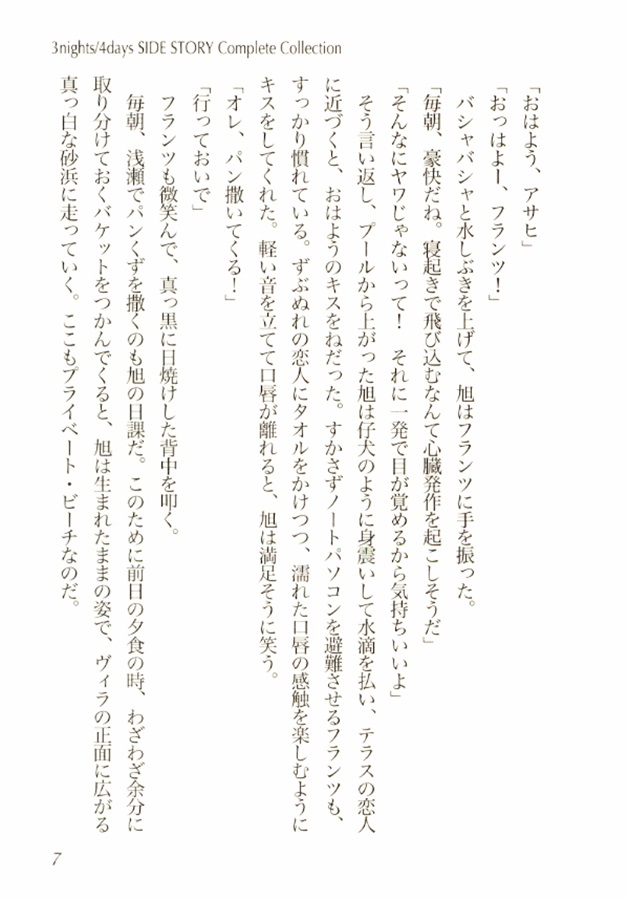 3nights/4days SIDE STORY Complete Collection
「おはよう、アサヒ」
「おっはよー、フランツ！」
バシャバシャと水しぶきを上げて、旭はフランツに手を振った。
「毎朝、豪快だね。寝起きで飛び込むなんて心臓発作を起こしそうだ」
「そんなにヤワじゃないって！　それに一発で目が覚めるから気持ちいいよ」
そう言い返し、プールから上がった旭は仔犬のように身震いして水滴を払い、テラスの恋人
に近づくと、おはようのキスをねだった。すかさずノートパソコンを避難させるフランツも、
すっかり慣れている。ずぶぬれの恋人にタオルをかけつつ、濡れた口唇の感触を楽しむように
キスをしてくれた。軽い音を立てて口唇が離れると、旭は満足そうに笑う。
「オレ、パン撒いてくる！」
「行っておいで」
フランツも微笑んで、真っ黒に日焼けした背中を叩く。
毎朝、浅瀬でパンくずを撒くのも旭の日課だ。このために前日の夕食の時、わざわざ余分に
取り分けておくバゲットをつかんでくると、旭は生まれたままの姿で、ヴィラの正面に広がる
真っ白な砂浜に走っていく。ここもプライベート・ビーチなのだ。
7